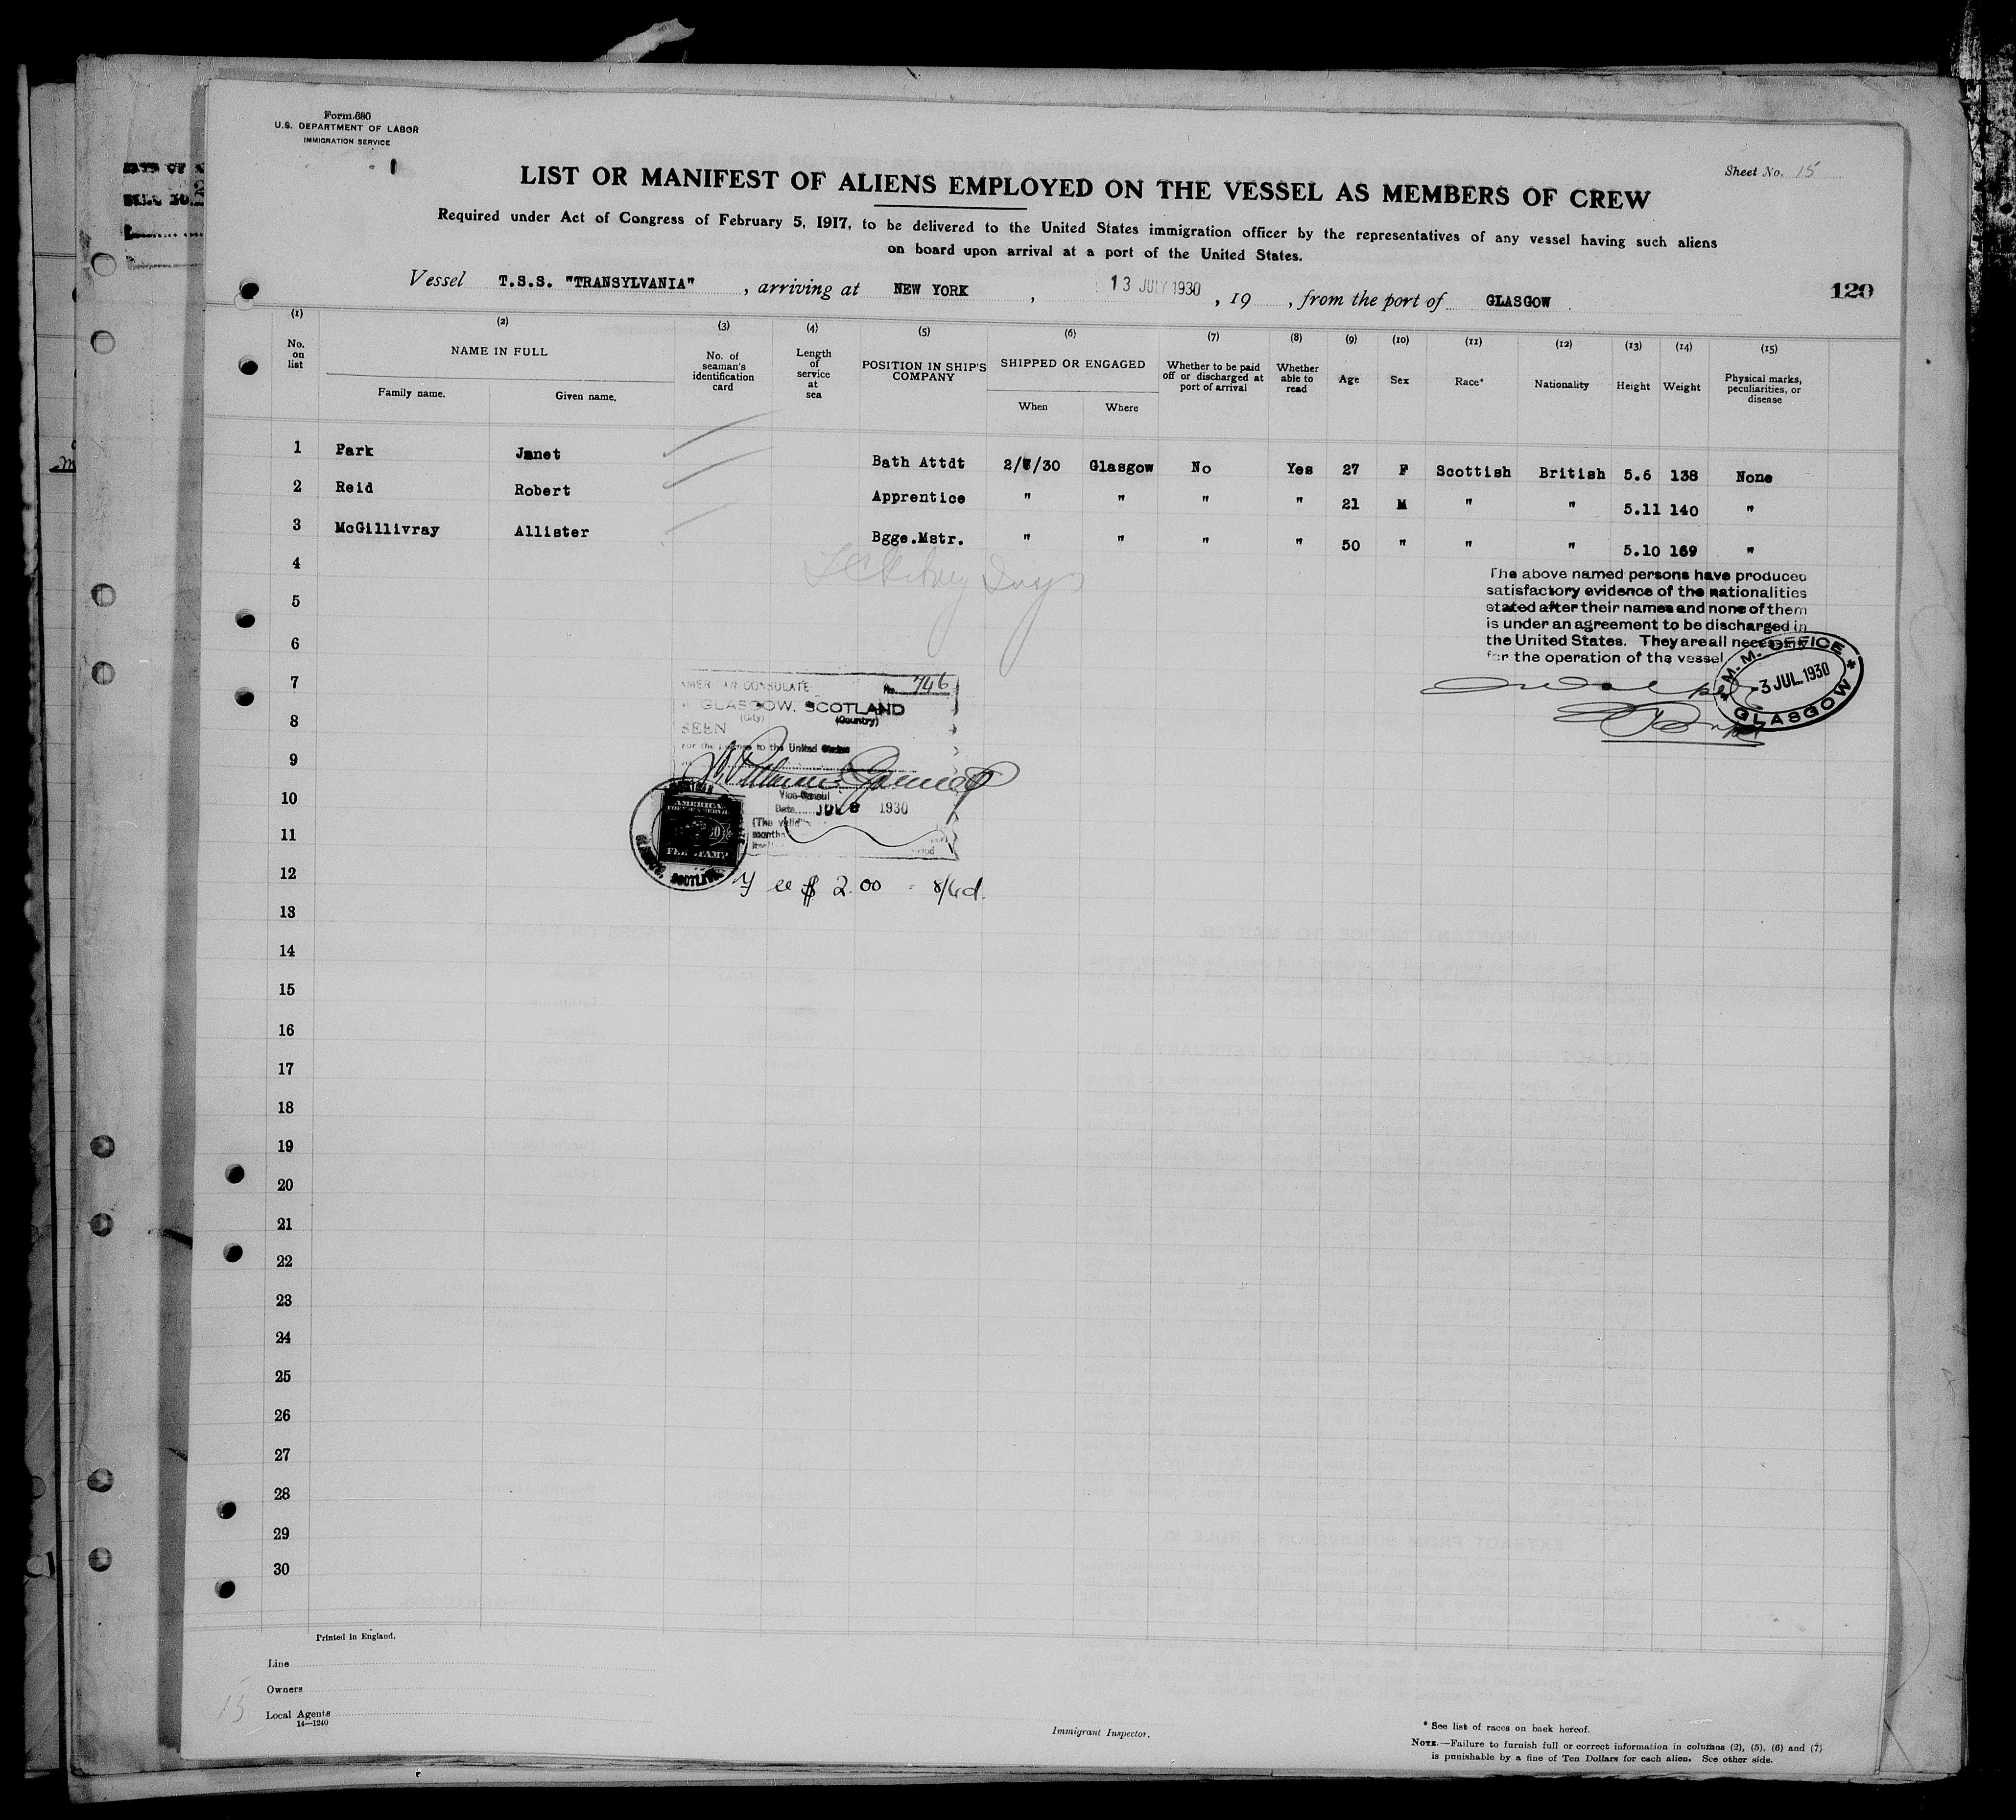 Form 680
U.S. DEPARTMENT OF LABOR
IMMIGRATION SERVICE
Sheet No. 15
LIST OR MANIFEST OF ALIENS EMPLOYED ON THE VESSEL AS MEMBERS OF CREW
Required under Act of Congress of February 5, 1917, to be delivered to the United States immigration officer by the representatives of any vessel having such aliens
on board upon arrival at a port of the United States.
Vessel T.S.S. "TRANSYLVANIA", arriving at NEW YORK, 13 JULY 1930, 19 , from the port of GLASGOW
120
(1) (2) (3) (4) (5) (6) (7) (8) (9) (10) (11) (12) (13) (14) (15)
No. on list NAME IN FULL Family name. Given name. No. of seaman's identification card Length of service at sea POSITION IN SHIP'S COMPANY SHIPPED OR ENGAGED When Where Whether to be paid off or discharged at port of arrival Whether able to read Age Sex Race* Nationality Height Weight Physical marks, peculiarities, or disease
1 Park Janet Bath Attdt 2/ /30 Glasgow No Yes 27 F Scottish British 5.6 138 None
2 Reid Robert Apprentice " " " " 21 M " " 5.11 140 "
3 McGillivray Allister Bgge.Mstr. " " " " 50 " " " 5.10 169 "
4
The above named persons have produced
satisfactory evidence of the nationalities
5
stated after their names and none of them
is under an agreement to be discharged in
6
the United States. They are all necessary
for the operation of the vessel
M.M. OFFICE
-3 JUL.1930
GLASGOW
7
AMERICAN CONSULATE No. 746
GLASGOW, SCOTLAND
(City) (Country)
8
SEEN
For the to the United States
9
Vice-Consul
10
Date JUL 8 1930
AMERICAN
FEE STAMP
11
(The
months
12
GLASGOW, SCOTLAND
Fee $ 2.00 = 8/4d.
13
14
15
16
17
18
19
20
21
22
23
24
25
26
27
28
29
30
Printed in England.
Line
Owners
15
Local Agents
14—1240
Immigrant Inspector.
* See list of races on back hereof.
NOTE.—Failure to furnish full or correct information in columns (2), (5), (6) and (7)
is punishable by a fine of Ten Dollars for each alien. See other side.